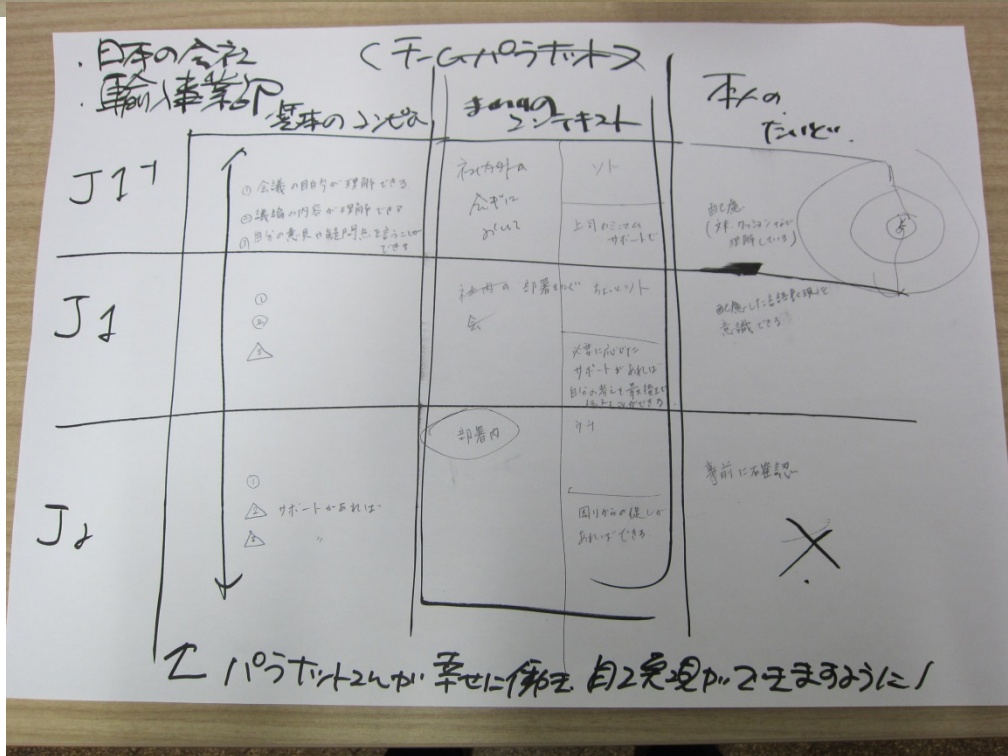 ・日本の会社
・輸入事業部
<チームパラボット>
基本のコンピた
まわりの
コンテキスト
本人の
たいど
J1+
① 会議の目的が理解できる
② 議論の内容が理解できる
③ 自分の意見や疑問点を言うことが
できる
社内外の
会ぎに
おいて
ソト
上司のミニマム
サポートで
配慮
理解している)
J1
①
②
③
社内の 部署をこえ ちょいソト
会
必要に応じた
サポートがあれば
自分で考えて最後まで
配慮した言語表現を
意識できる
J2
①
② サポートがあれば
③ 〃
部署内
ウチ
周りからの促しが
あればできる
事前に確認
↑ パラボットさんが 幸せに働き、自己実現ができますように!